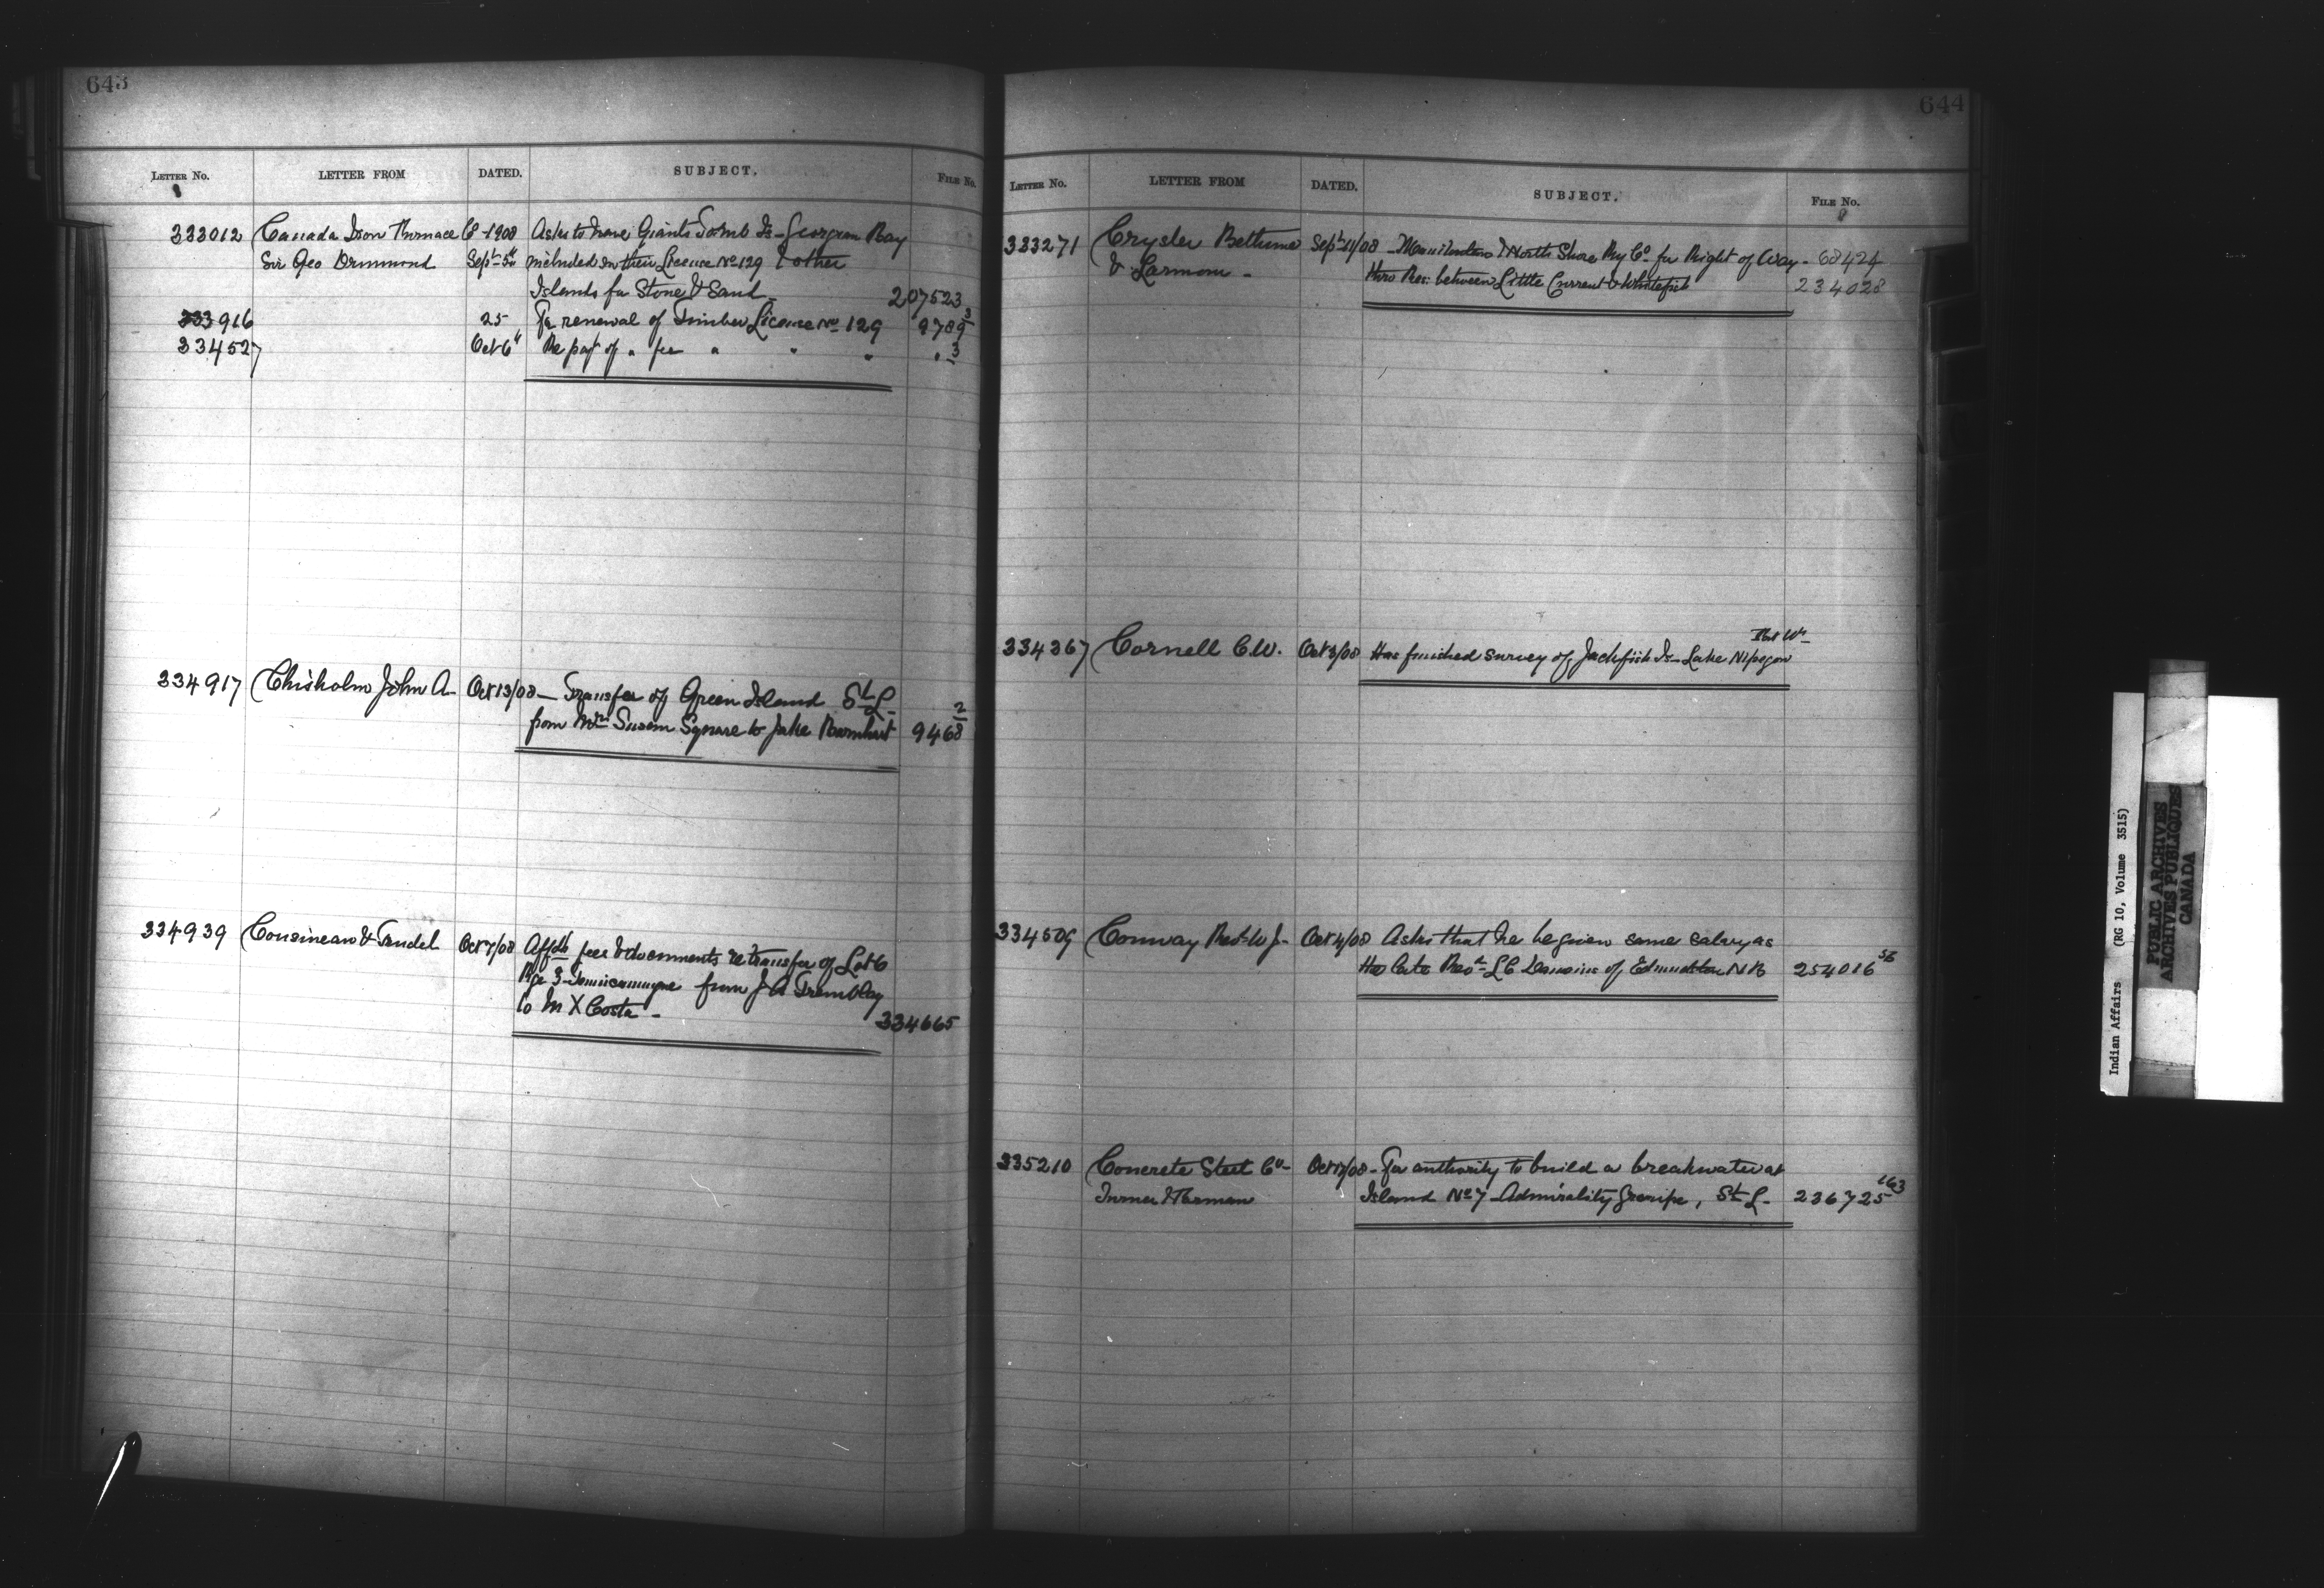 643
LETTER No. LETTER FROM DATED. SUBJECT. FILE No.
333012 Canada Iron Furnace Co 1908 Asks to have Giants Tomb Is - Georgian Bay
Sir Geo Drummond Sept 5" included in their License No 129 & other
Islands for Stone & Sand - 207523
333916 25 For renewal of Timber License No 129 9789 3
334527 Oct 6" Re payt of " fee " " " " 3
334917 Chisholm John A - Oct 13/08 - Transfer of Green Island St L -
from Mrs Susan Square to Jake Barnhart 9468 2
334939 Cousineau & Trudel Oct 7/08 Affdt fee & documents re transfer of Lot 6
Rge 3 - Temiscamingue from J A Tremblay
to M X Costa - 334665
644
LETTER No. LETTER FROM DATED. SUBJECT. FILE No.
333271 Crysler Bethune Sept 11/08 - Manitoulin & North Shore Ry Co for Right of Way - 68424
& Larmon - thro Res: between Little Current & Whitefish 234028
334367 Cornell C.W. Oct 3/08 Has finished survey of Jackfish Is - Lake Nipegon
334509 Conway Revd W J - Oct 4/08 Asks that he be given same salary as
the late Revd L C of Edmundston N B 254016 56
335210 Concrete Steel Co - Oct 17/08 - For authority to build a breakwater at
Turner Herman Island No 7 - Admirality Group, St L - 236725 163
Indian Affairs (RG 10, Volume 3515)
PUBLIC ARCHIVES
ARCHIVES PUBLIQUES
CANADA